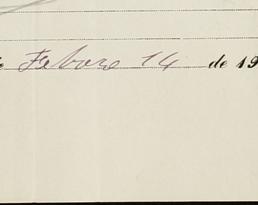 Febrero 14 de 19